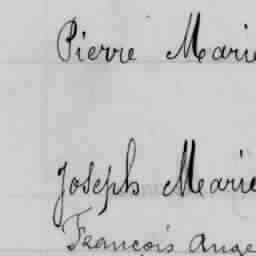 Pierre Marie
Joseph Marie
François Ange